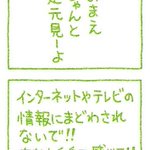 おまえ
ちゃんと
足元見ーよ
インターネットやテレビの
情報にまどわされ
ないで!!